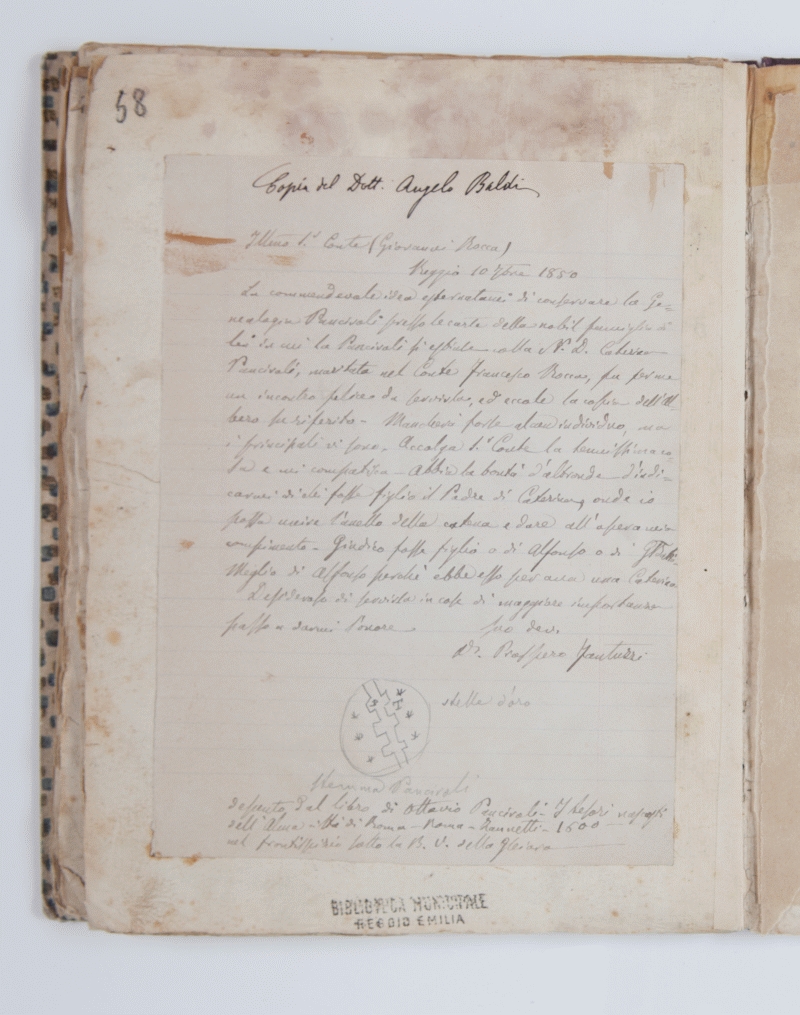 58
Copia del Dott. Angelo Baldi
Illmo Sr Conte (Giovanni Rocca)
Reggio 10 1850
La commendevole idea esternatami di conservare la Ge=
nealogia Panciroli presso le carte della nobil famiglia
la Panciroli si estinse colla N. D. Caterina
Panciroli, maritata nel Conte Francesco Rocca, fu per me
un incontro felice da servirla, ed eccole la copia dell'Al
bero Mancherà forse alcun individuo, ma
i principali vi sono. Accolga Sr Conte la
e mi compatisca. Abbia la bontà d'altronde d'indi=
carmi di chi fosse figlia il Padre di Caterina, onde io
possa unire l'anello della catena e dare all'opera
compimento. Giudico fosse figlio o di Alfonso o di
Meglio di Alfonso perchè ebbe esso per una Caterina
Desideroso di servirla in cose di maggiore importanza
passo a darmi l'onore
suo dev.
Dr. Prospero Fantuzzi
stelle d'oro
Stemma Panciroli
dal libro di Ottavio Panciroli - I tesori nascosti
dell'Alma città di Roma - Roma - Zannetti - 1600
nel frontispizio sotto la B. V. della Ghiara
BIBLIOTECA MUNICIPALE
REGGIO EMILIA